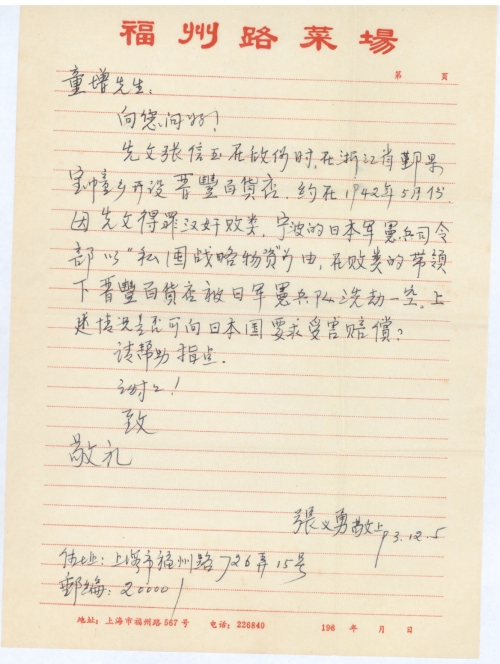 福州路菜場
第 页
童增先生:
向您问好!
先父张信玉在敌伪时,在浙江省鄞县
宝幢乡开设晋豐百貨店.约在1942年5月份
因先父得罪汉奸败类,宁波的日本军憲兵司令
部以"私囤战略物資"为由,在败类的带领
下晋豐百貨店被日军憲兵队洗劫一空,上
述情况是否可向日本国要求受害赔償?
请帮助指点.
谢谢!
致
敬礼
張义勇敬上
93.12.5
住址:上海市福州路726弄15号
郵编:200001
地址:上海市福州路567号 电话:226840 196 年 月 日